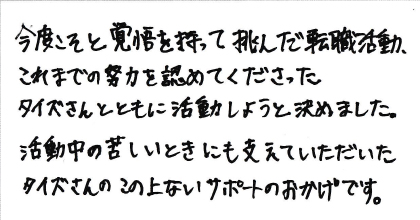 今度こそと覚悟を持って挑んだ転職活動、
これまでの努力を認めてくださった
タイズさんとともに活動しようと決めました。
活動中の苦しいときにも支えていただいた
タイズさんのこの上ないサポートのおかげです。